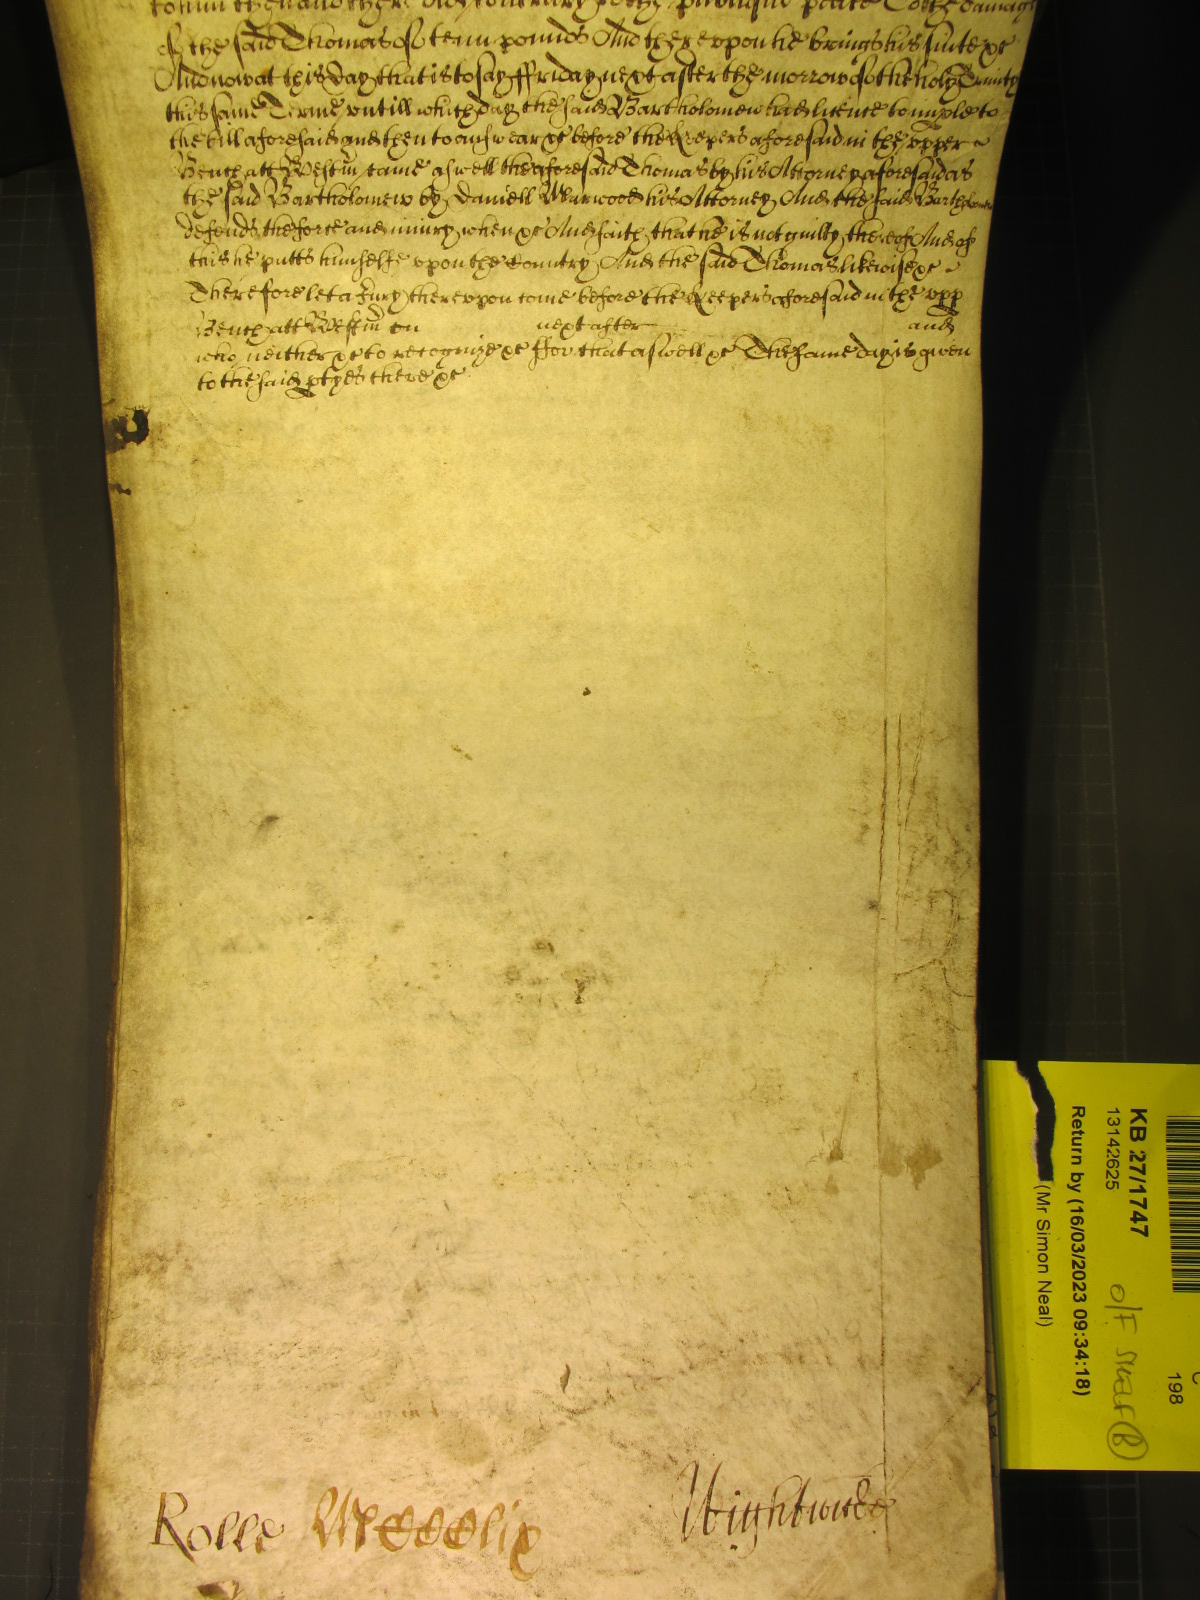 of the said Thomas of tenn pounds And thereupon he brings his suite &c
And now at this day that is to say ffriday next after the morrow of the holy Trinity
this same Terme untill which day the said Bartholomew had licence to imple to
the bill aforesaid and then to answear &c before the Keepers aforesaid in the upper
Bench att Westm came aswell the aforesaid Thomas by his Attorney aforesaid as
the said Bartholomew by Daniell Warwood his Attorney And the said Bartholomew
defends the force and iniury when &c And saith that he is not guilty thereof And of
this he putts himselfe upon the Country And the said Thomas likewise &c
Therefore let a Jury thereupon come before the Keepers aforesaid in the upp
Bench att Westm on next after and
who neither &c to recognize &c ffor that aswell &c The same day is given
to the said ptyes there &c
Rolle MCCCClix Wightwicke
KB 27/1747
13142625
Return by (16/03/2023 09:34:18)
(Mr Simon Neal)
198
O/F